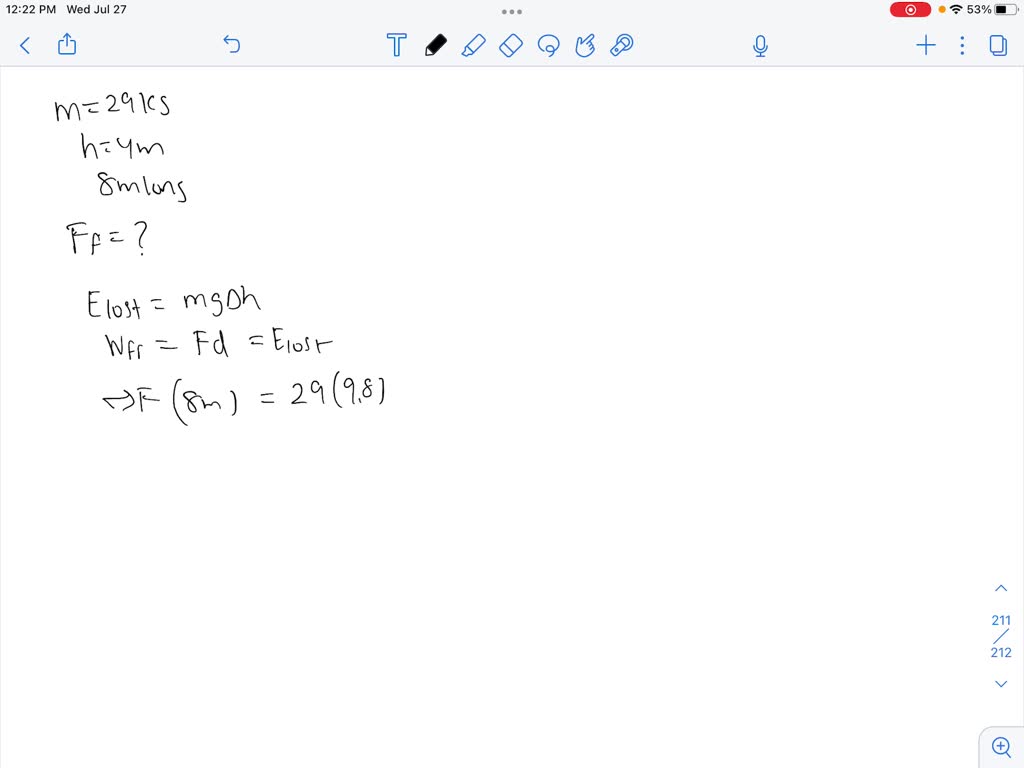 12:22 PM Wed Jul 27
53%
m=29kg
h=4m
8m long
Ff=?
Elost = mgΔh
Wfr = Fd = Elost
↪F (8m) = 29(9.8)
211
212